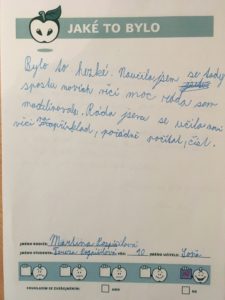 JAKÉ TO BYLO
Bylo to hezké. Naučila jsem se tady
spostu novích věcí moc ráda sem
modelinovala. Ráda jsem se učila nové
věci například, pořádně počítat, číst.
JMÉNO RODIČE: Martina Pospíšilová
JMÉNO STUDENTA: Tereza Pospíšilová VĚK: 10 JMÉNO UČITELE:
SOUHLASÍM SE ZVEŘEJNĚNÍM: ANO NE